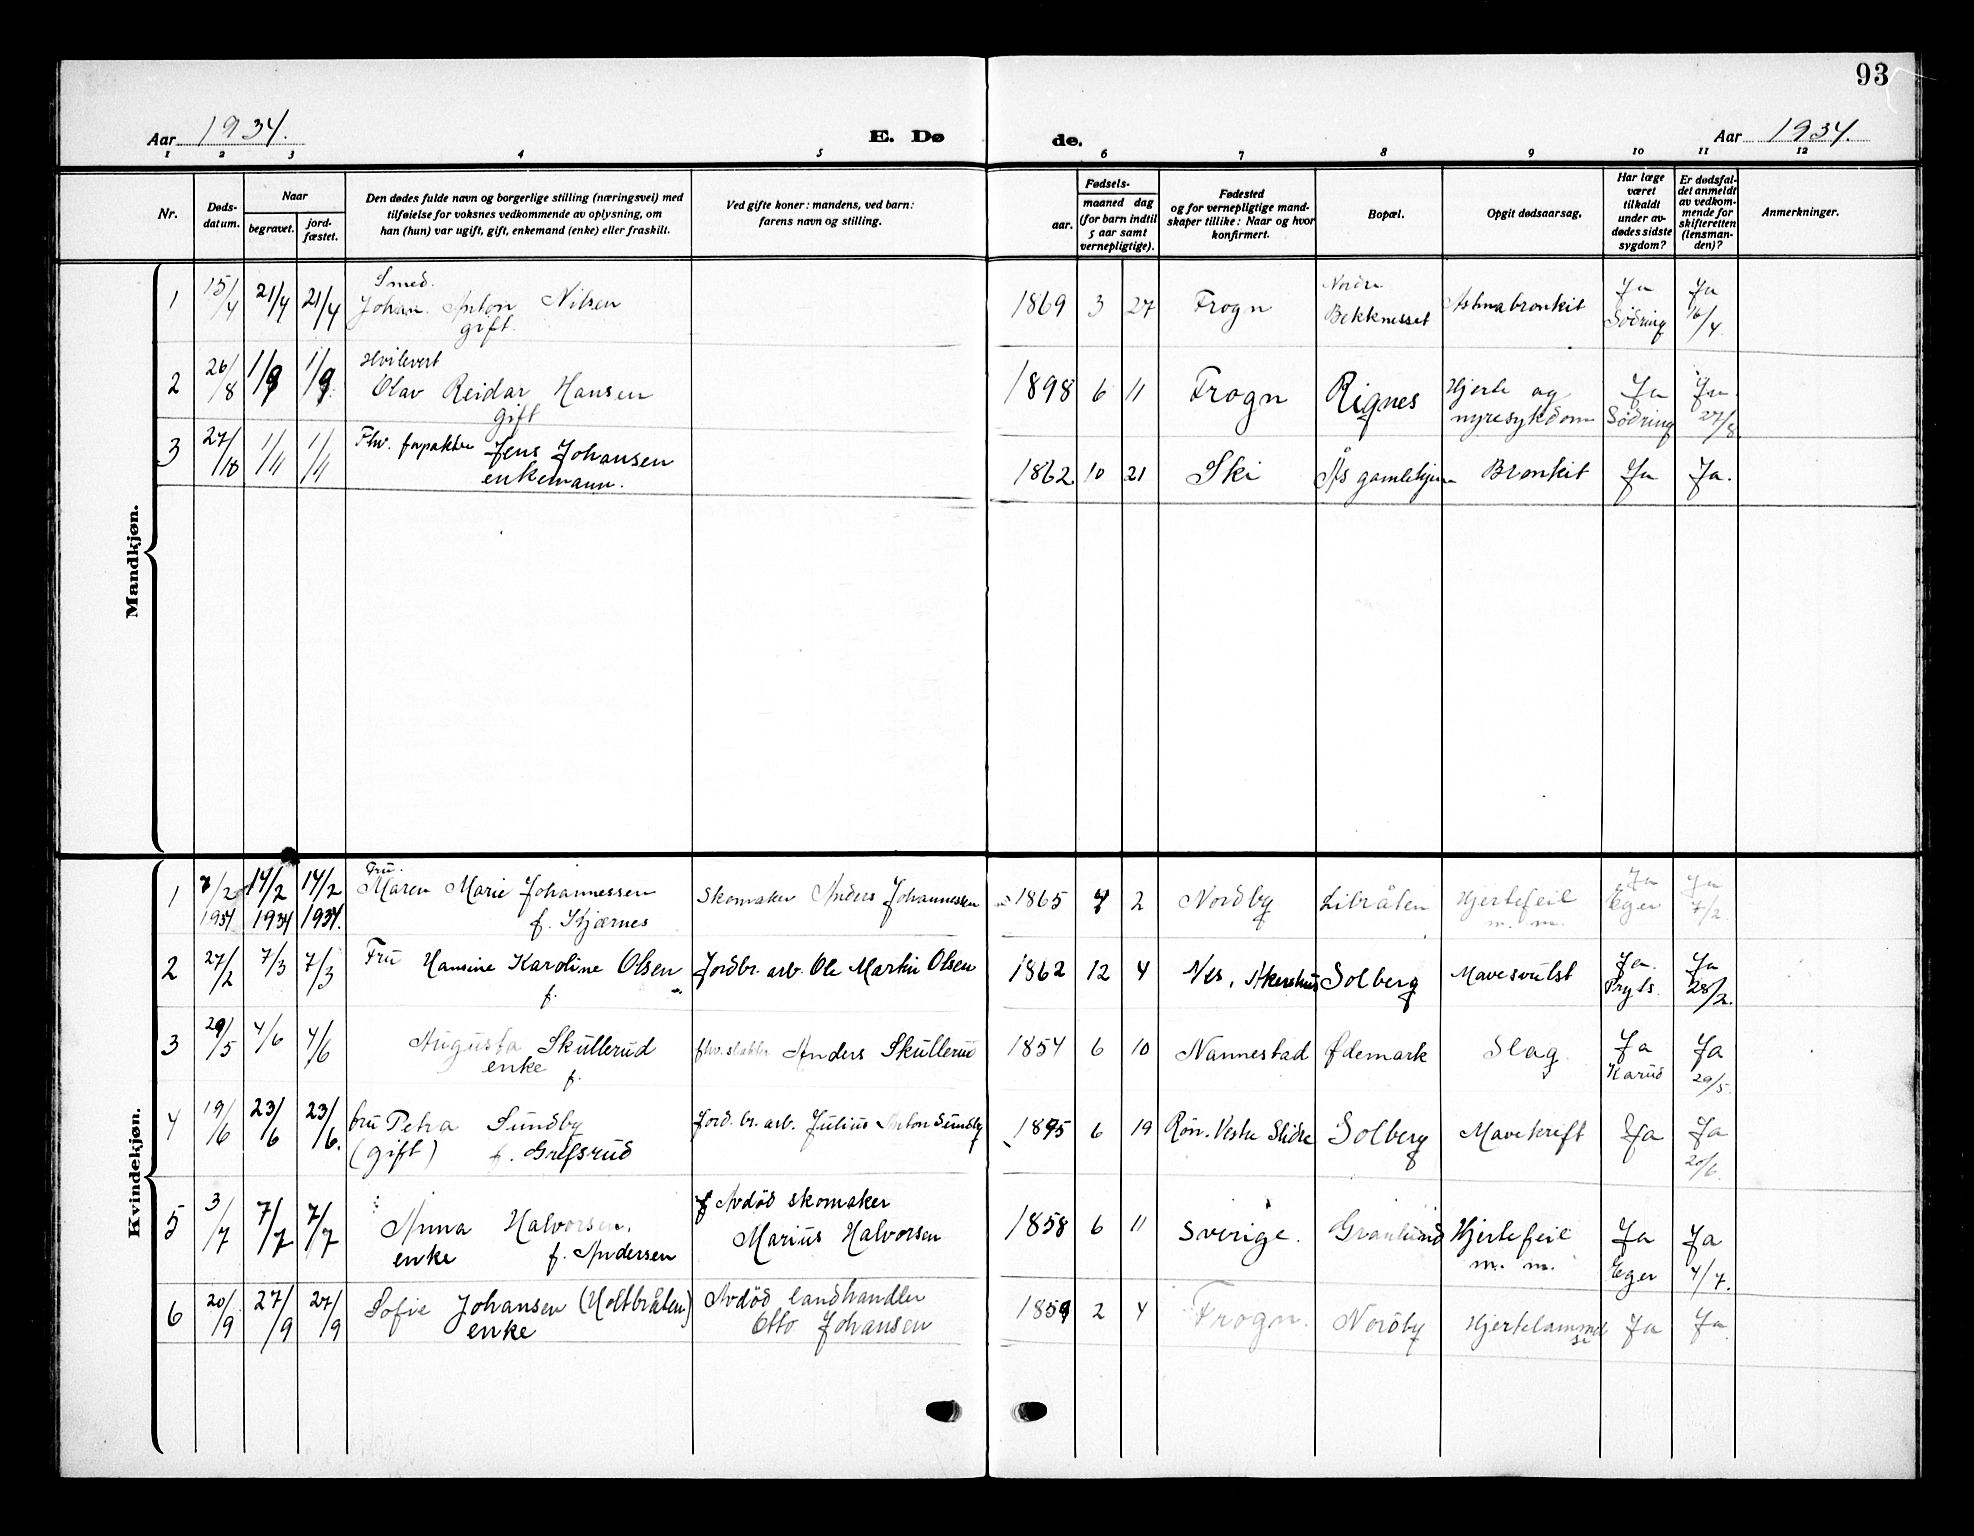 93
Aar 1934. E. Dø de. Aar 1934.
1 2 3 4 5 6 7 8 9 10 11 12
Nr.
Døds-
datum.
Naar
begravet.
jord-
fæstet.
Den dødes fulde navn og borgerlige stilling (næringsvei) med
tilføielse for voksnes vedkommende av oplysning, om
han (hun) var ugift, gift, enkemand (enke) eller fraskilt.
Ved gifte koner: mandens, ved barn:
farens navn og stilling.
Fødsels-
aar.
maaned dag
(for barn indtil
5 aar samt
vernepligtige).
Fødested
og for vernepligtige mand-
skaper tillike: Naar og hvor
konfirmert.
Bopæl.
Opgit dødsaarsag.
Har læge
været
tilkaldt
under av-
dødes sidste
sygdom?
Er dødsfal-
det anmeldt
av vedkom-
mende for
skifteretten
(lensman-
den)?
Anmerkninger.
Mandkjøn.
Smed. Nordre Ja Ja
1 15/4 21/4 21/4 Johan Anton Nilsen 1869 3 27 Frogn Bekknesset Astmabronkit Södring 16/4.
gift.
Hvilevert
2 26/8 1/9 1/9 Olav Reidar Hansen 1898 6 11 Frogn Rignes Hjerte og Ja Ja
gift nyresykdom Södring 27/8
3 27/10 1/11 1/11 Fhv. forpakter Jens Johansen 1862 10 21 Ski Ås gamlehjem Bronkit Ja Ja.
enkemann.
Kvindekjøn.
Fru. Ja Ja
1 14/2 14/2 Maren Marie Johannessen Skomaker Anders Johannessen 1865 4 2 Nordby Libråten Hjertefeil Eger 7/2.
1934 1934 1934. f. Kjærnes m. m.
2 27/2 7/3 7/3 Fru Hansine Karoline Olsen Jordbr. arb. Ole Martin Olsen 1862 12 4 Nes, Akershus Solberg Mavesvulst Ja. Ja
f. Pryts. 28/2.
3 29/5 4/6 4/6 Augusta Skullerud fhv. Anders Skullerud 1854 6 10 Nannestad Ødemark Slag. Ja Ja
enke f. Karud 29/5.
4 19/6 23/6 23/6. fru Petra Sundby Jord. br. arb. Julius Anton Sundby 1895 6 19 Røn. Vestre Slidre Solberg Mavekreft Ja Ja
(gift) f. Grefsrud 20/6.
f Avdöd skomaker
5 3/7 7/7 7/7 Anna Halvorsen. Marius Halvorsen 1858 6 11 Sverige. Granlund Hjertefeil Ja Ja
enke f. Andersen m. m. Eger 4/7.
6 20/9 27/9 27/9 Sofie Johansen (Holtbråten) Avdöd landhandler 1859 2 4 Frogn. Nordby Hjertelammelse Ja Ja
enke Otto Johansen